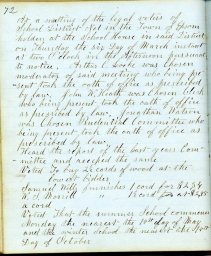 72
At a meeting of the legal voters of
School District No 1 in the Town of
holden at the School House in said District
on Thursday the day of March instant
at two O'clock in the afternoon pursuant
to notice. Was chosen
moderator of said meeting who being pre-
sent took the oath of office as prescribed
by law. John H. was chosen Clerk
who being present took the oath of office
as prescribed by law. Jonathan
was Chosen Prudential Committee who
being present, took the oath of office as
prescribed by law.
Heard the report of the last years Com-
mittee and accepted the same
Voted To buy 2 cords of wood at the
lowest bidder
Samuel furnishes 1 cord for $2.54
W. S. Morrill " 1 cord for
a cord
Voted That the summer School commence
Monday the nearest the 10th day of May
and the winter School the nearest the
Day of October